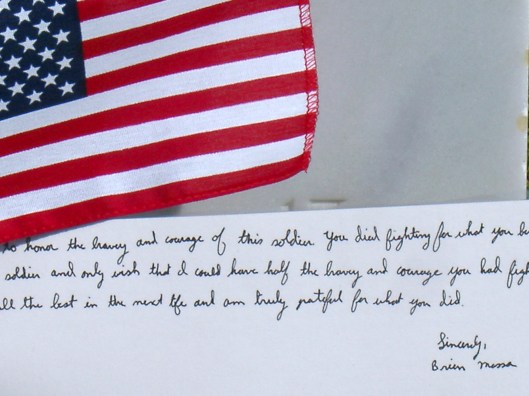 to honor the bravey and courage of this soldier. You died fighting for what you
soldier and only wish that I could have half the bravey and courage you had
the best in the next life and am truly grateful for what you did.
Sincerely,
Brien Messa